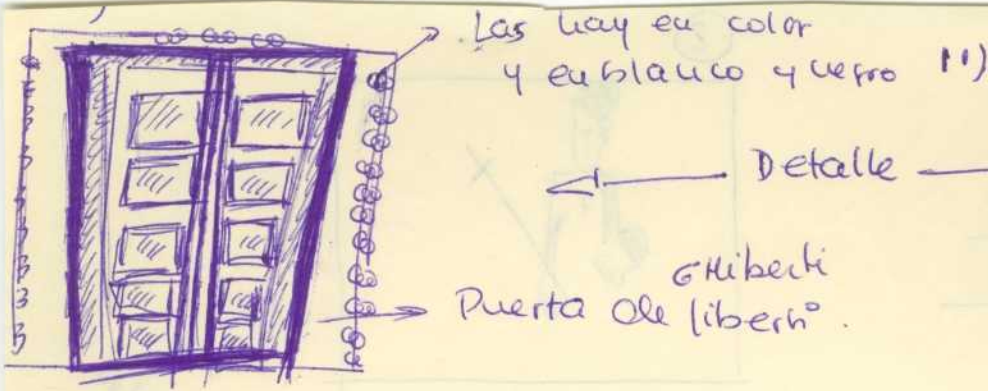 Las hay en color
y en blanco y negro 11)
Detalle
GHiberti
Puerta de liberti.